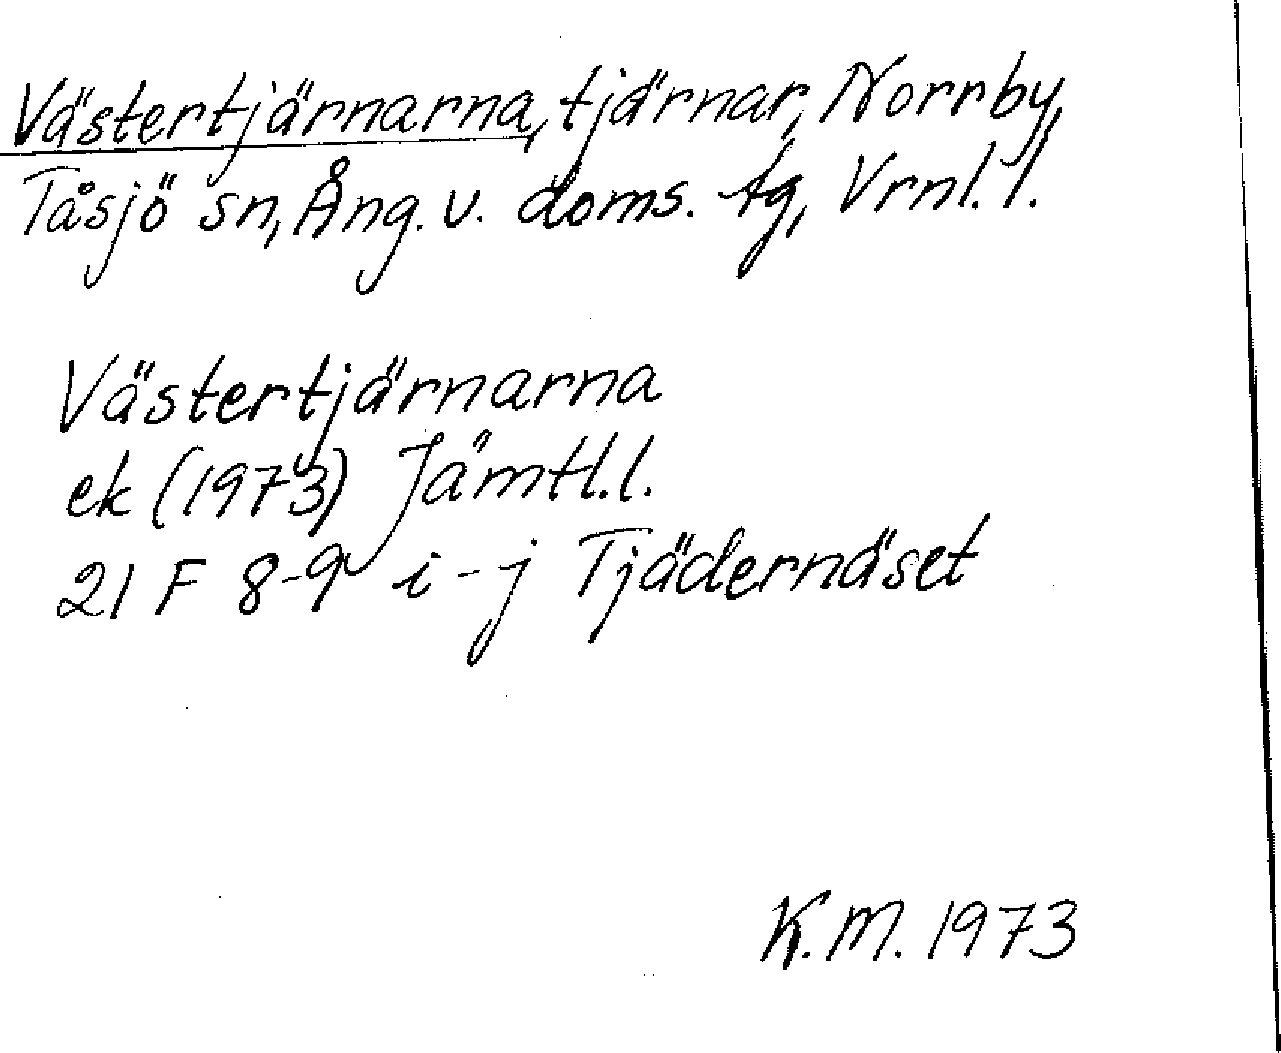 Västertjärnarna, tjärnar, Norrby,
Tåsjö sn, Ång. v. doms. tg, Vrnl. l.
Västertjärnarna
ek (1973) Jämtl. l.
21 F 8-9 i-j Tjädernäset
K.M. 1973